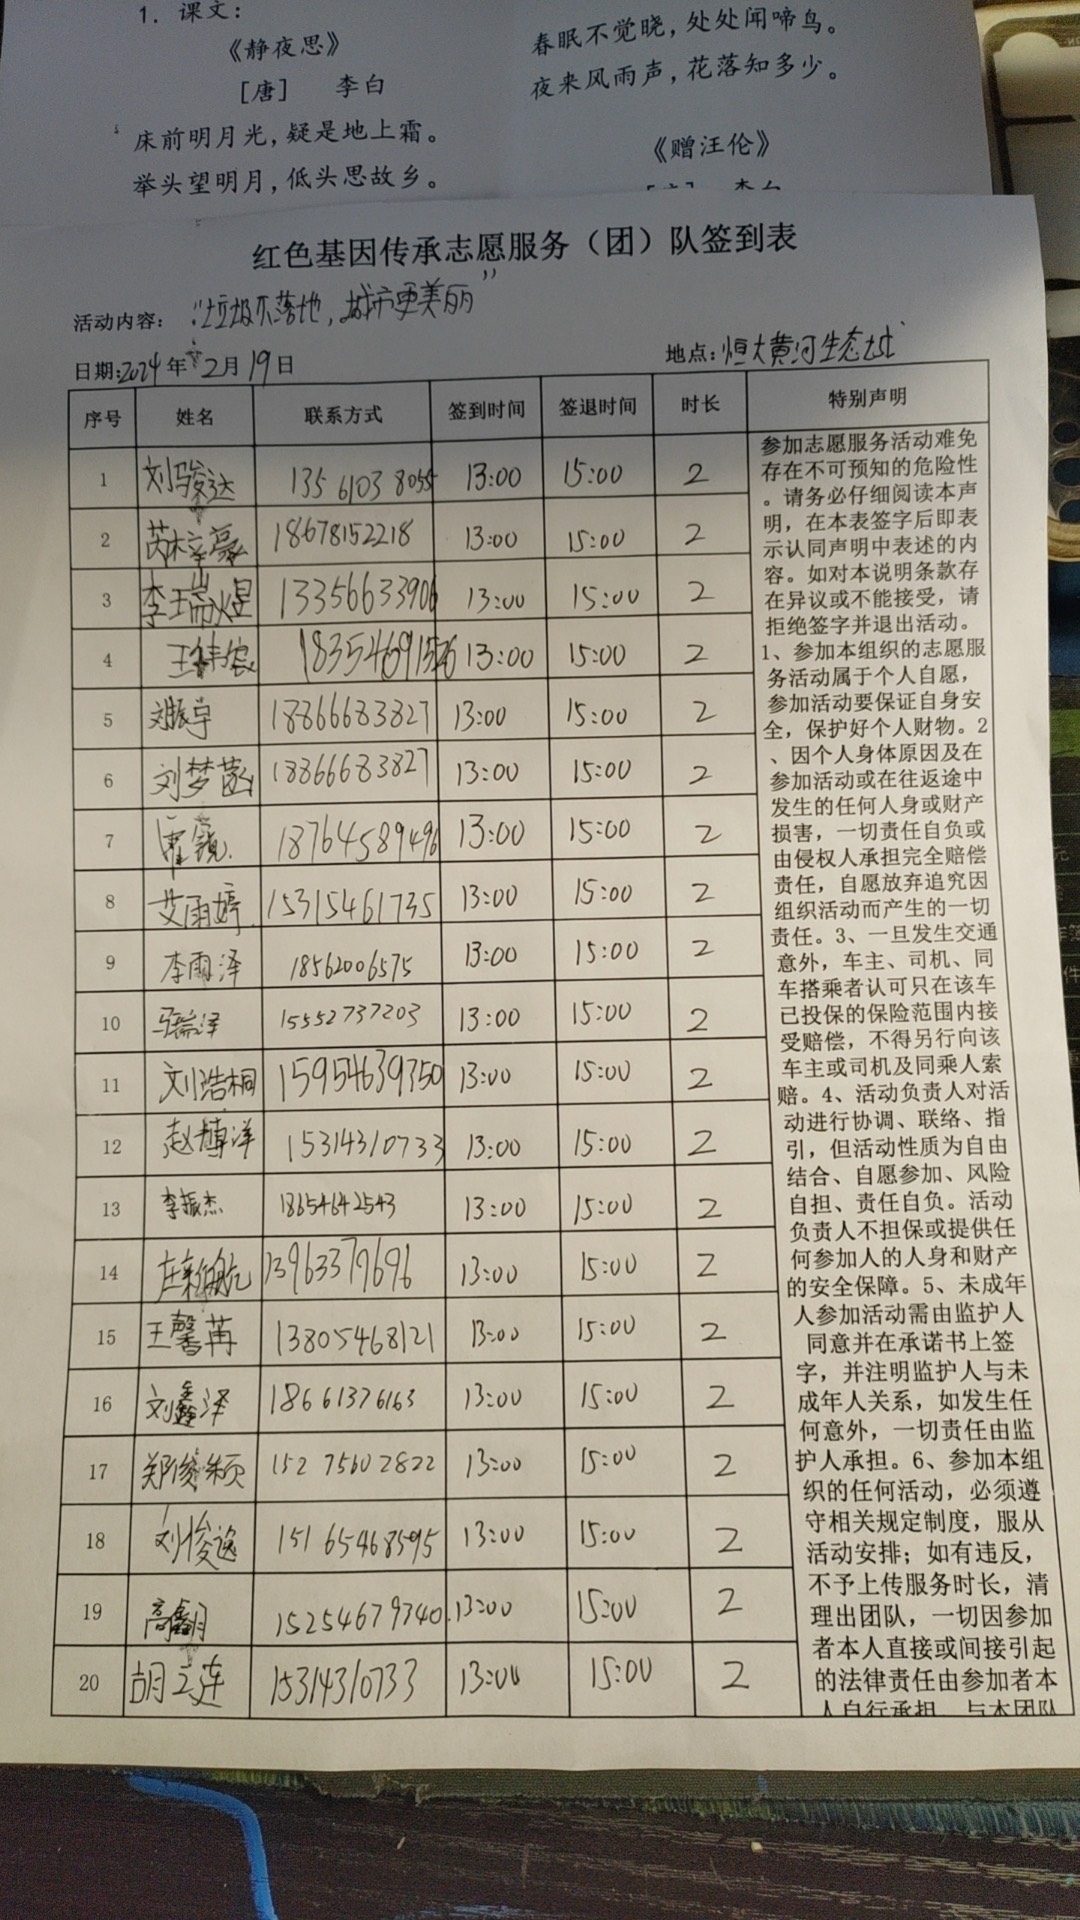 1. 课文：
《静夜思》
[唐] 李白
床前明月光，疑是地上霜。
举头望明月，低头思故乡。
春眠不觉晓，处处闻啼鸟。
夜来风雨声，花落知多少。
《赠汪伦》
李白
红色基因传承志愿服务（团）队签到表
活动内容："垃圾不落地，城市更美丽"
日期:2024年2月19日 地点:恒大黄河生态城
序号 姓名 联系方式 签到时间 签退时间 时长 特别声明
1 刘骏达 13561038055 13:00 15:00 2
2 芮梓豪 18678152218 13:00 15:00 2
3 李瑞煜 13356633906 13:00 15:00 2
4 王 13:00 15:00 2
5 刘振宇 18866683827 13:00 15:00 2
6 刘梦菡 18866683827 13:00 15:00 2
7 18764589496 13:00 15:00 2
8 艾雨婷 15315461735 13:00 15:00 2
9 李雨泽 18562006575 13:00 15:00 2
10 15552737203 13:00 15:00 2
11 刘浩桐 15954639350 13:00 15:00 2
12 赵博洋 15314310733 13:00 15:00 2
13 李振杰 18654642543 13:00 15:00 2
14 13963379696 13:00 15:00 2
15 王馨苒 13805468121 13:00 15:00 2
16 刘鑫泽 18661376163 13:00 15:00 2
17 郑俊颖 15275602822 13:00 15:00 2
18 刘俊逸 15165468595 13:00 15:00 2
19 高鑫月 15254679340 13:00 15:00 2
20 胡立连 15314310733 13:00 15:00 2
参加志愿服务活动难免
存在不可预知的危险性
。请务必仔细阅读本声
明，在本表签字后即表
示认同声明中表述的内
容。如对本说明条款存
在异议或不能接受，请
拒绝签字并退出活动。
1、参加本组织的志愿服
务活动属于个人自愿，
参加活动要保证自身安
全，保护好个人财物。2
、因个人身体原因及在
参加活动或在往返途中
发生的任何人身或财产
损害，一切责任自负或
由侵权人承担完全赔偿
责任，自愿放弃追究因
组织活动而产生的一切
责任。3、一旦发生交通
意外，车主、司机、同
车搭乘者认可只在该车
已投保的保险范围内接
受赔偿，不得另行向该
车主或司机及同乘人索
赔。4、活动负责人对活
动进行协调、联络、指
引，但活动性质为自由
结合、自愿参加、风险
自担、责任自负。活动
负责人不担保或提供任
何参加人的人身和财产
的安全保障。5、未成年
人参加活动需由监护人
同意并在承诺书上签
字，并注明监护人与未
成年人关系，如发生任
何意外，一切责任由监
护人承担。6、参加本组
织的任何活动，必须遵
守相关规定制度，服从
活动安排；如有违反，
不予上传服务时长，清
理出团队，一切因参加
者本人直接或间接引起
的法律责任由参加者本
人自行承担，与本团队